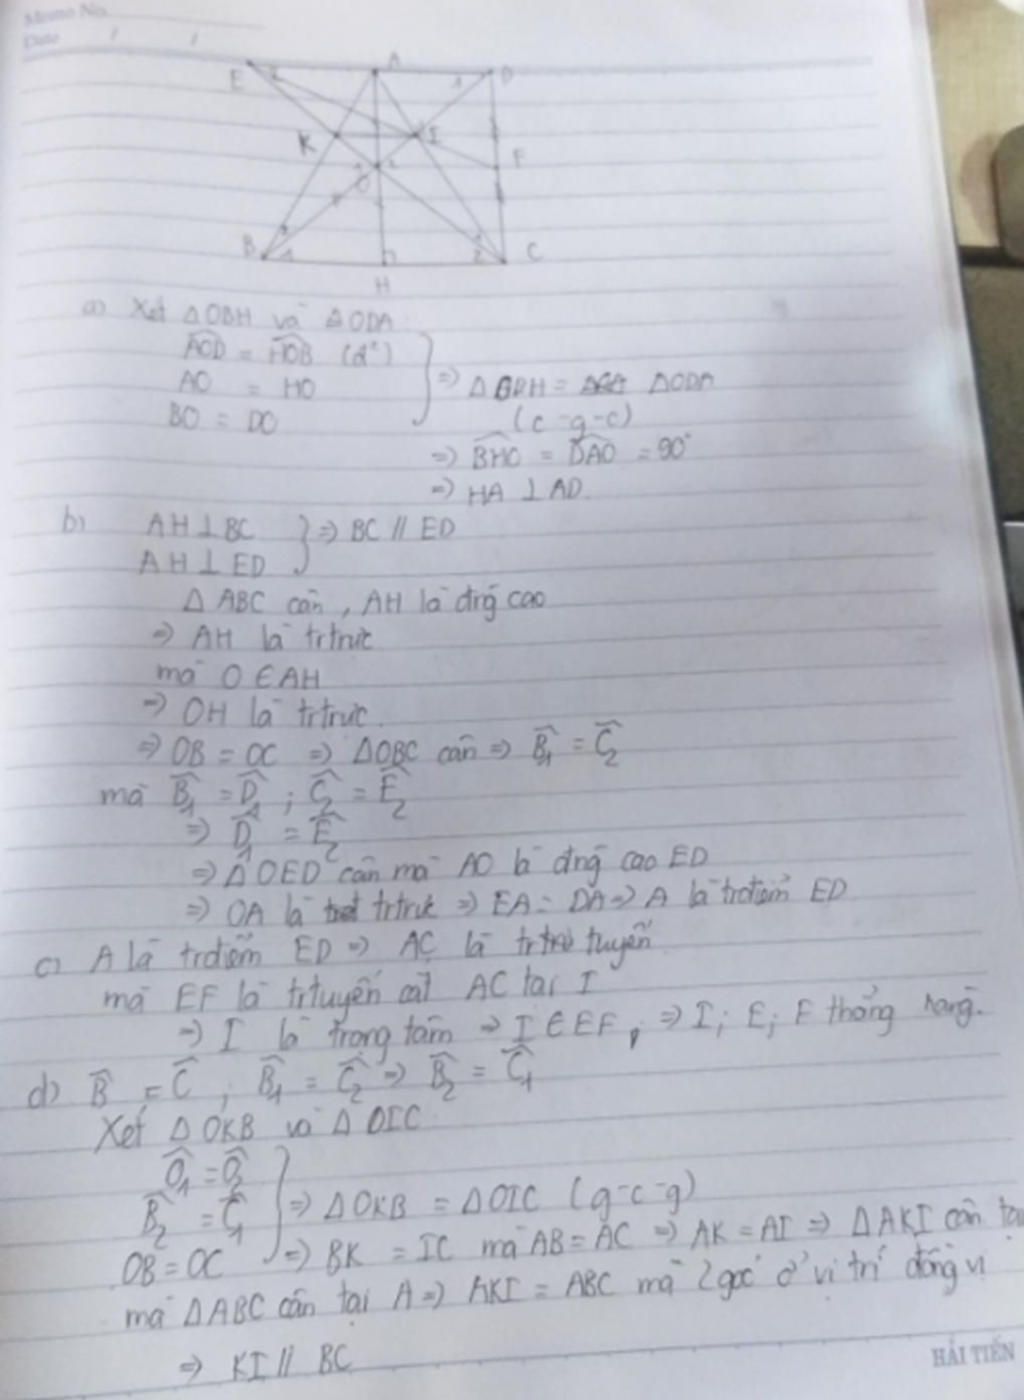 Memo No.
Date / /
E A D
K I
O F
B H C
a) Xét △OBH và △ODA
AOD = HOB (đ²)
AO = HO
BO = DO
⇒ △BRH = △ODA
(c-g-c)
⇒ BHO = DAO = 90°
⇒ HA ⊥ AD.
b) AH ⊥ BC
AH ⊥ ED
⇒ BC // ED
△ABC cân, AH là đng̃ cao
⇒ AH là trtrực
mà O ∈ AH
⇒ OH là trtrực.
⇒ OB = OC ⇒ △OBC cân ⇒ B₁ = C₂
mà B₁ = D₁ ; C₂ = E₂
⇒ D₁ = E₂
⇒ △OED cân mà AO là đng̃ cao ED
⇒ OA là trtrực ⇒ EA = DA ⇒ A là trđiểm ED
c) A là trđiểm ED ⇒ AC là trtuyến
mà EF là trtuyến cắt AC tại I
⇒ I là trọng tâm ⇒ I ∈ EF, ⇒ I; E; F thẳng hàng.
d) B = C ; B₁ = C₂ ⇒ B₂ = C₁
Xét △OKB và △OIC
O₁ = O₂
B₂ = C₁
OB = OC
⇒ △OKB = △OIC (g-c-g)
⇒ BK = IC mà AB = AC ⇒ AK = AI ⇒ △AKI cân tại
mà △ABC cân tại A ⇒ AKI = ABC mà 2 góc ở vị trí đồng vị
⇒ KI // BC
HẢI TIẾN